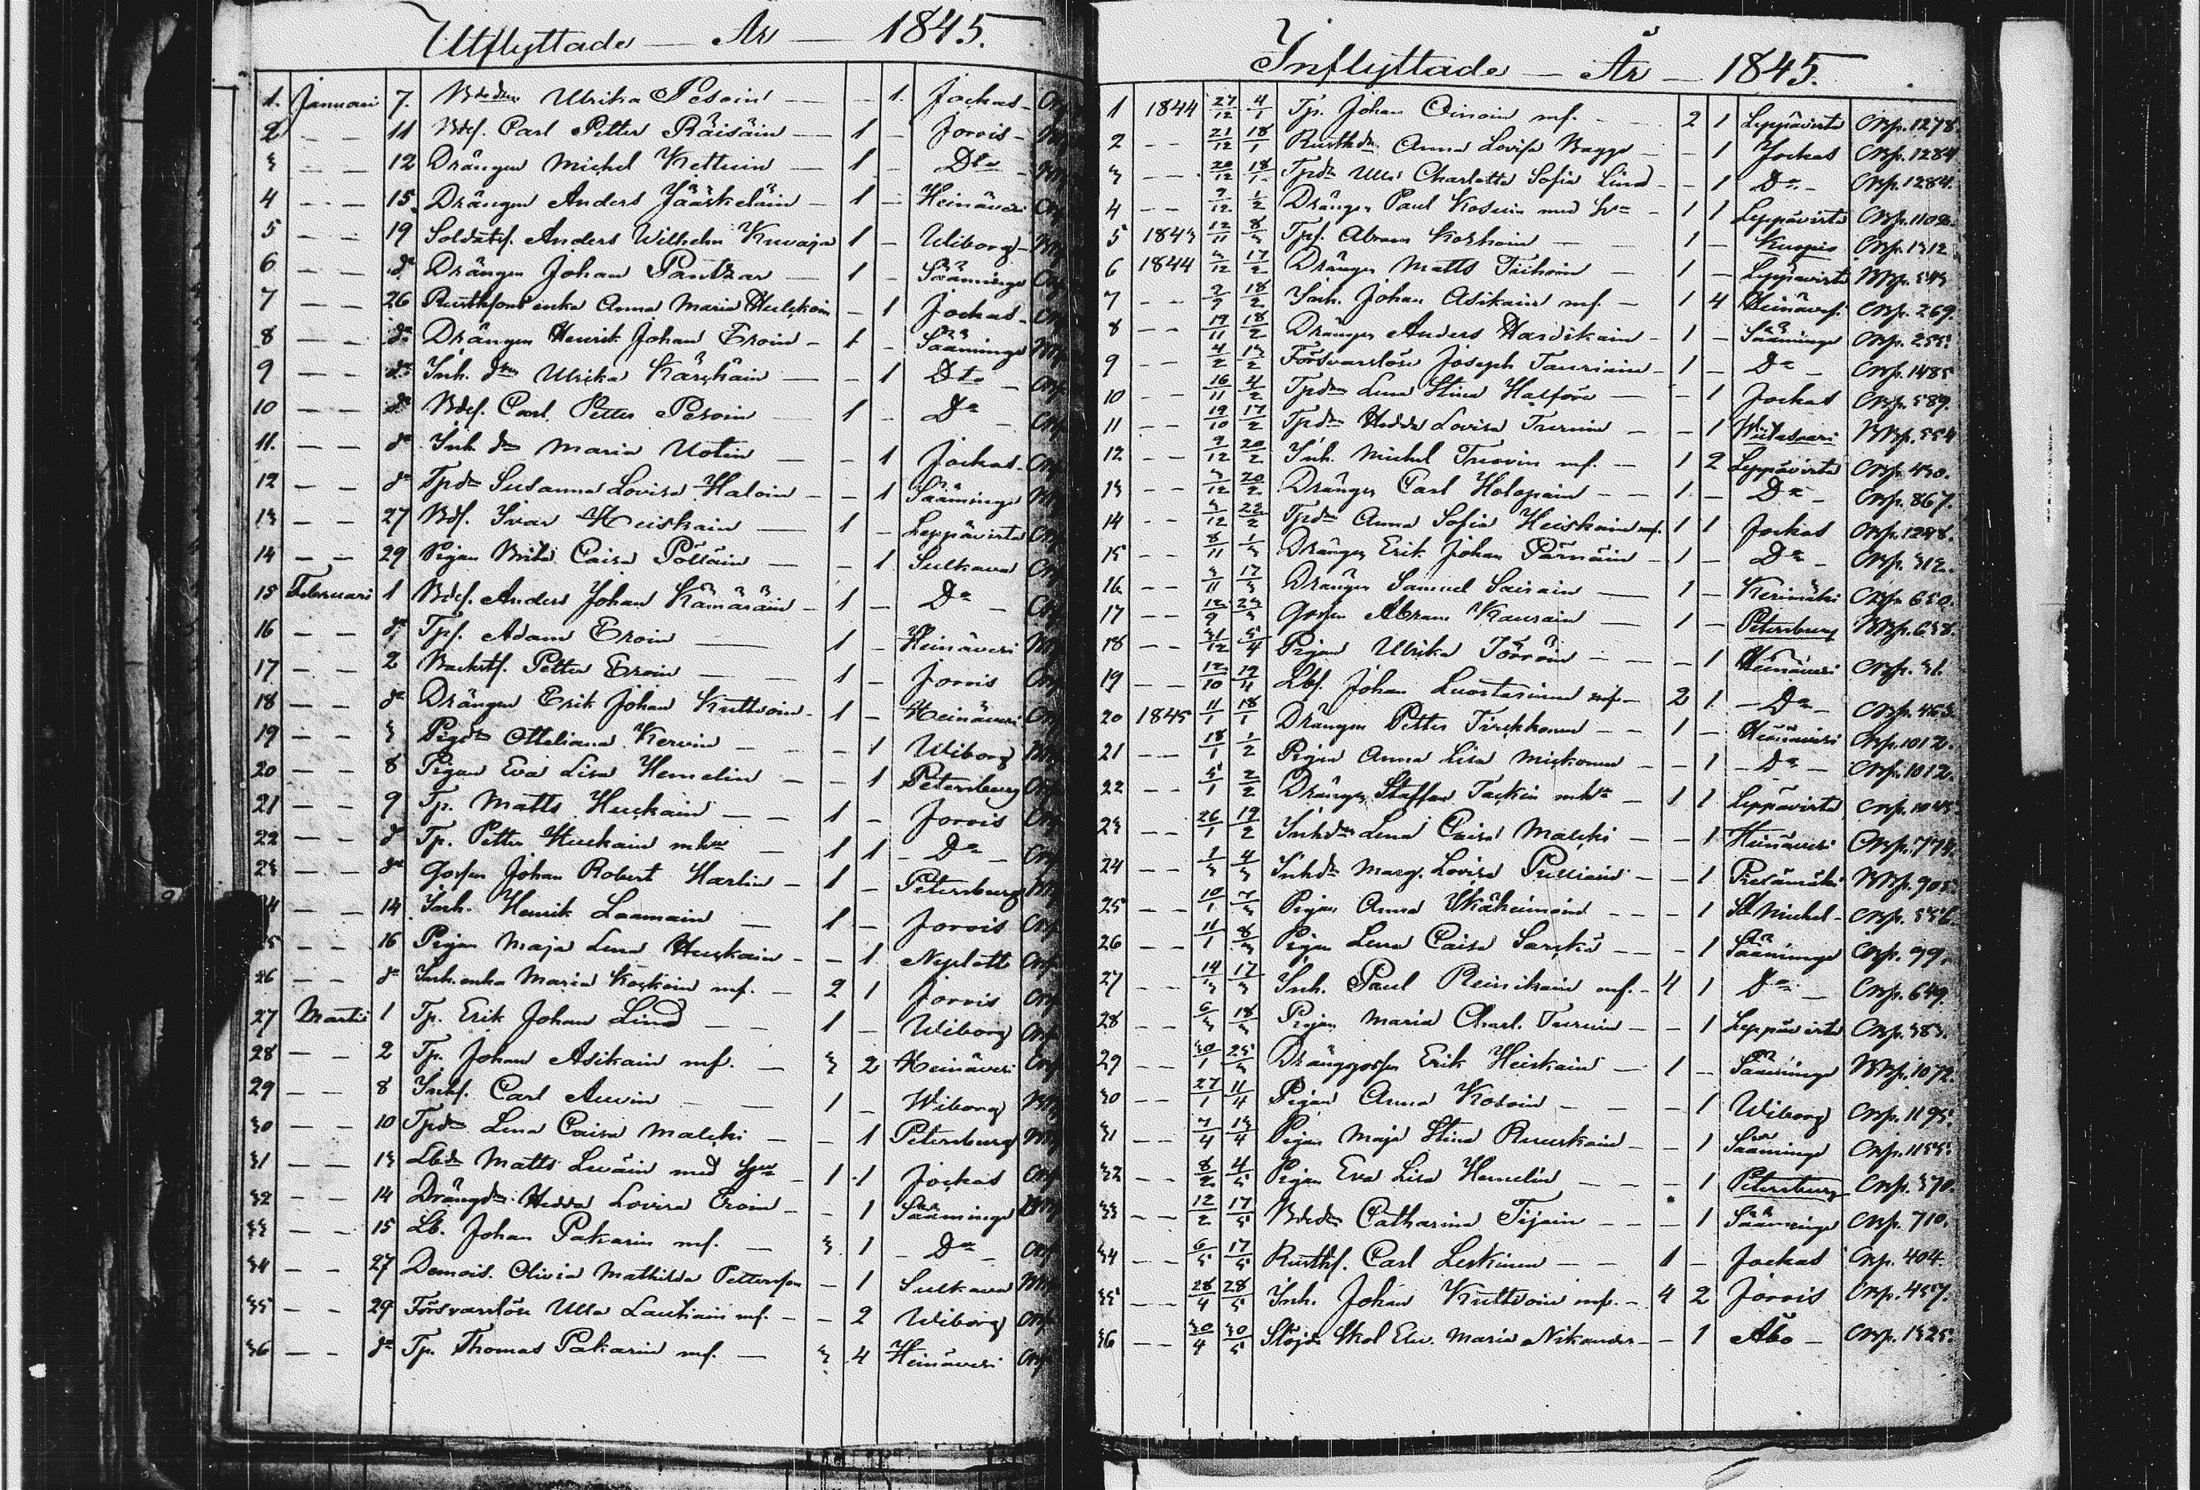 Utflyttade — År — 1845.
1. Januari 7. Ulrika Pesoin — — 1. Jockas
2 — — 11 Bdes. Carl Petter Räisäin — 1 — Jorois
3 — — 12 Drängen Michel Kettuin — 1 — Dto
4 — — 15. Drängen Anders Jääskeläin — 1 — Heinävesi
5 19 Soldats. Anders Wilhelm Kuvaja 1 — Wiborg
6 — — do Drängen Johan Pantzar — 1 — Sääminge
7 — — 26 enka Anna Maria — 1 Jockas
8 — — do Drängen Henrik Johan Eroin — 1 — Sääminge
9 — — do Inh. dtr Ulrika Kärkäin — — 1 Dto
10 — — do Bdes. Carl Petter Pesoin — 1 — Do
11. — — do Inh dr Maria Uotin — — 1 Jockas
12 — — do Tpdr Susanna Lovisa Haloin — — 1 Sääminge
13 — — 27 Bdes. Ivar Heiskain — 1 — Leppävirta
14 — — 29 Pigan Brita Caisa Pöllain — — 1 Sulkava
15 Februari 1 Bdes. Anders Johan Kämäräin — 1 — Do
16 — — do Tps. Adam Eroin — 1 — Heinävesi
17 — — 2 Petter Eroin — 1 — Jorois
18 — — do Drängen Erik Johan Kuttvoin — 1 — Heinävesi
19 — — 3 Otteliana Kervin — — 1 Wiborg
20 — — 8 Pigan Eva Lisa Hemelin — — 1 Petersburg
21 — — 9 Tp. Matts Huskain — 1 — Jorois
22 — — do Tp. Petter Huskain mhu — 1 1 Do
23 — — do Gossen Johan Robert Harlin — 1 — Petersburg
24 — — 14 Inh. Henrik Laamain — 1 — Jorois
25 — — 16 Pigan Maja Lena Huskain — — 1 Nyslott
26 — — do Inh. enka Maria Koskoin mf. — 2 1 Jorois
27 Martii 1 Tp. Erik Johan Lind — 1 — Wiborg
28 — — 2 Tp. Johan Asikain mf. — 3 2 Heinävesi
29 — — 8 Inhs. Carl Auvin — 1 — Wiborg
30 — — 10 Tpdr Lena Caisa Malski — — 1 Petersburg
31 — — 13 Matts Leväin med hu 1 1 Jockas
32 — — 14 Drängdr. Hedda Lovisa Eroin — — 1 Sääminge
33 — — 15 Lb. Johan Pakarin mf. — 3 1 Do
34 — — 27 Demois. Olivia Mathilda Petterson — 1 Sulkava
35 — — 29 Försvarslösa Ulla Laukain mf. — — 2 Wiborg
36 — — do Tp. Thomas Pakarin mf. — 3 4 Heinävesi
Inflyttade — År — 1845.
1 1844 27/12 4/1 Tp. Johan Oinoin mf. 2 1 Leppävirta 1278.
2 — — 21/12 18/1 Anna Lovisa Bagge — 1 Jockas 1284
3 — — 20/12 18/1 Tpdr Ulla Charlotta Sofia Lind — — 1 Do 1284.
4 — — 9/12 1/2 Drängen Paul Kosuin med hu — 1 1 Leppävirta
5 1843 12/11 8/3 Tps. Abram Koshoin — 1 — Kuopio 1312
6 1844 3/12 17/2 Drängen Matts Tiihoin — 1 — Leppävirta 543
7 — — 2/9 18/2 Inh. Johan Asikain mf. — 1 4 Heinäves. 269.
8 — — 19/11 18/2 Drängen Anders Hardikain — 1 — Sääminge 255.
9 — — 4/2 13/2 Försvarslöse Joseph Tauriain — 1 — Do 1485
10 — — 16/11 4/2 Tpdr Lena Stina Halföre — — 1 Jockas 589.
11 — — 19/10 17/2 Tpdr Hedda Lovisa Turuin — — 1 Wiitasaari 554
12 — — 9/12 20/2 Inh. Michel Tuovin mf. — 1 2 Leppävirta 430.
13 — — 3/12 20/2 Drängen Carl Holopain — — 1 — Do 867.
14 — — 3/12 22/2 Tpdr Anna Sofia Heiskain mf. 1 1 Jockas 1298.
15 — — 8/11 1/3 Drängen Erik Johan Pärnäin — 1 — Do 312.
16 — — 3/11 17/3 Drängen Samuel Sairain — 1 — Kerimäki 650.
17 — — 12/9 23/3 Gossen Abram Kausain — 1 — Petersburg 638.
18 — — 31/12 5/4 Pigan Ulrika — — 1 Heinävesi 31.
19 — — 12/10 19/4 Lbs. Johan Luostarinen mf. — 2 1 Do 463.
20 1845 11/1 18/1 Drängen Petter Tirkkonen — — 1 — Heinävesi 1012.
21 — — 18/1 1/2 Pigan Anna Lisa Miskonen — — 1 Do 1012.
22 — — 5/1 2/2 Drängen Staffan Taskin mhu — 1 1 Leppävirta 1045.
23 — — 26/1 19/2 Inhdr Lena Caisa Malski — — 1 Heinävesi 774.
24 — — 1/3 4/3 Inhdr Marg. Lovisa — — 1 905.
25 — — 10/1 7/3 Pigan Anna — — 1 St. Michel 556.
26 — — 11/1 8/3 Pigan Lena Caisa — — 1 Sääminge 99.
27 — — 14/3 17/3 Inh. Paul Reinikain mf. — 4 1 Do 649.
28 — — 6/3 18/3 Pigan Maria Charl. Turuin — — 1 Leppävirta 383.
29 — — 30/1 25/3 Dränggossen Erik Heiskain — 1 — Sääminge 1072.
30 — — 27/1 11/4 Pigan Anna Kosoin — — 1 Wiborg 1195.
31 — — 7/4 13/4 Pigan Maja Stina Ruuskain — — 1 Sääminge 1155.
32 — — 8/2 4/5 Pigan Eva Lisa Hemelin — — 1 Petersburg 370.
33 — — 12/2 17/5 Catharina Tijain — — 1 Sääminge 710.
34 — — 6/5 17/5 Carl Leskinen — — 1 — Jockas 404.
35 — — 28/4 28/5 Inh. Johan Kuttvoin mf. — 4 2 Jorois 457.
36 — — 30/4 30/5 Skol Elev. Maria Nikander — — 1 Åbo — 1325.